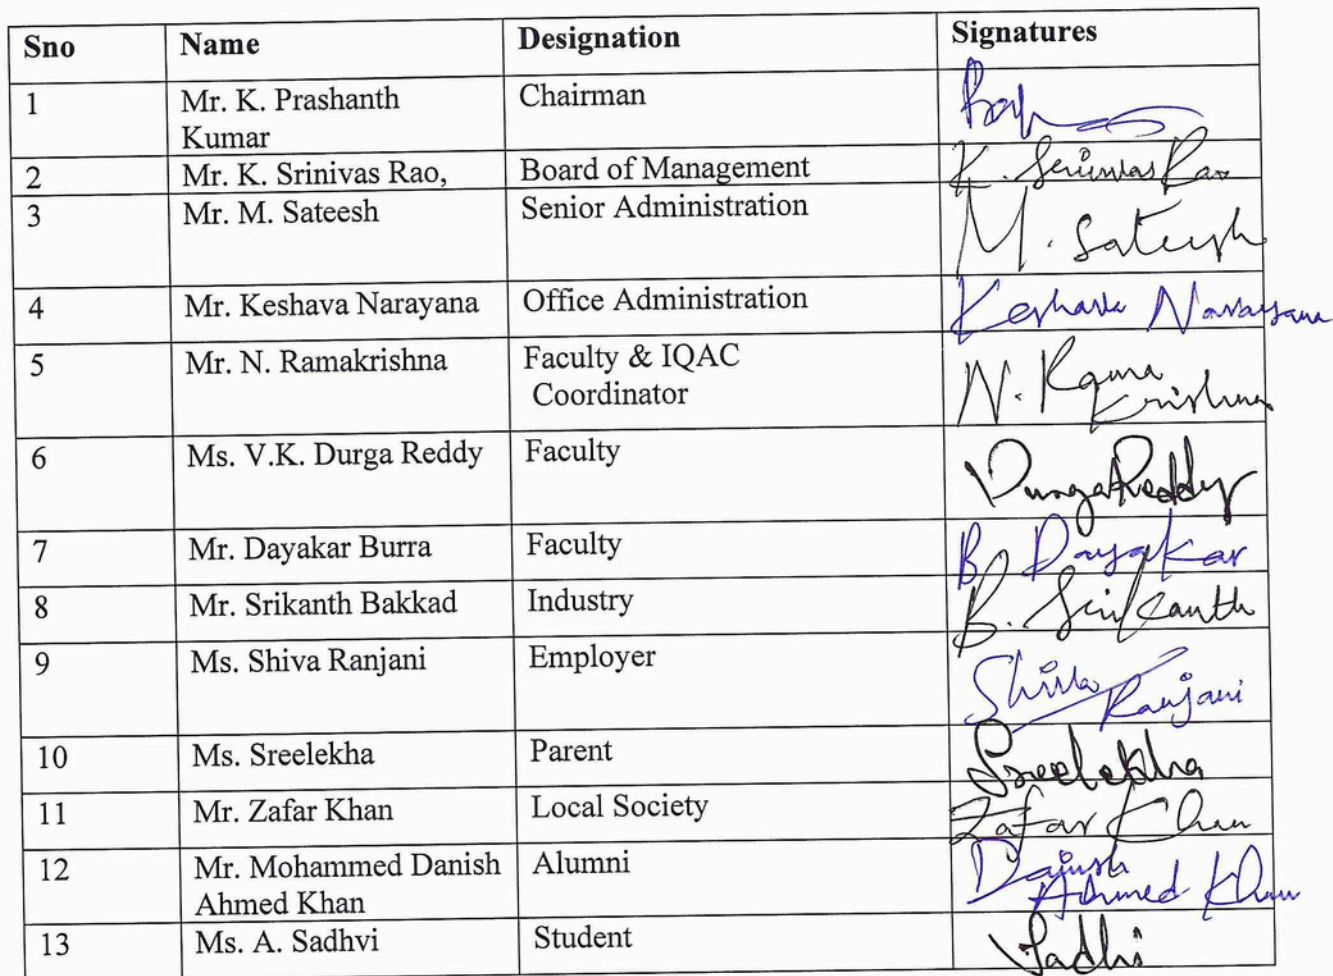 Sno Name Designation Signatures
1 Mr. K. Prashanth Chairman
Kumar
2 Mr. K. Srinivas Rao, Board of Management K. Srinivas Rao
3 Mr. M. Sateesh Senior Administration M. Sateesh
4 Mr. Keshava Narayana Office Administration Keshava Narayana
5 Mr. N. Ramakrishna Faculty & IQAC N. Rama
Coordinator Krishna
6 Ms. V.K. Durga Reddy Faculty DurgaReddy
7 Mr. Dayakar Burra Faculty B. Dayakar
8 Mr. Srikanth Bakkad Industry B. Srikanth
9 Ms. Shiva Ranjani Employer Shiva
Ranjani
10 Ms. Sreelekha Parent Sreelekha
11 Mr. Zafar Khan Local Society Zafar Khan
12 Mr. Mohammed Danish Alumni Danish
Ahmed Khan Ahmed Khan
13 Ms. A. Sadhvi Student